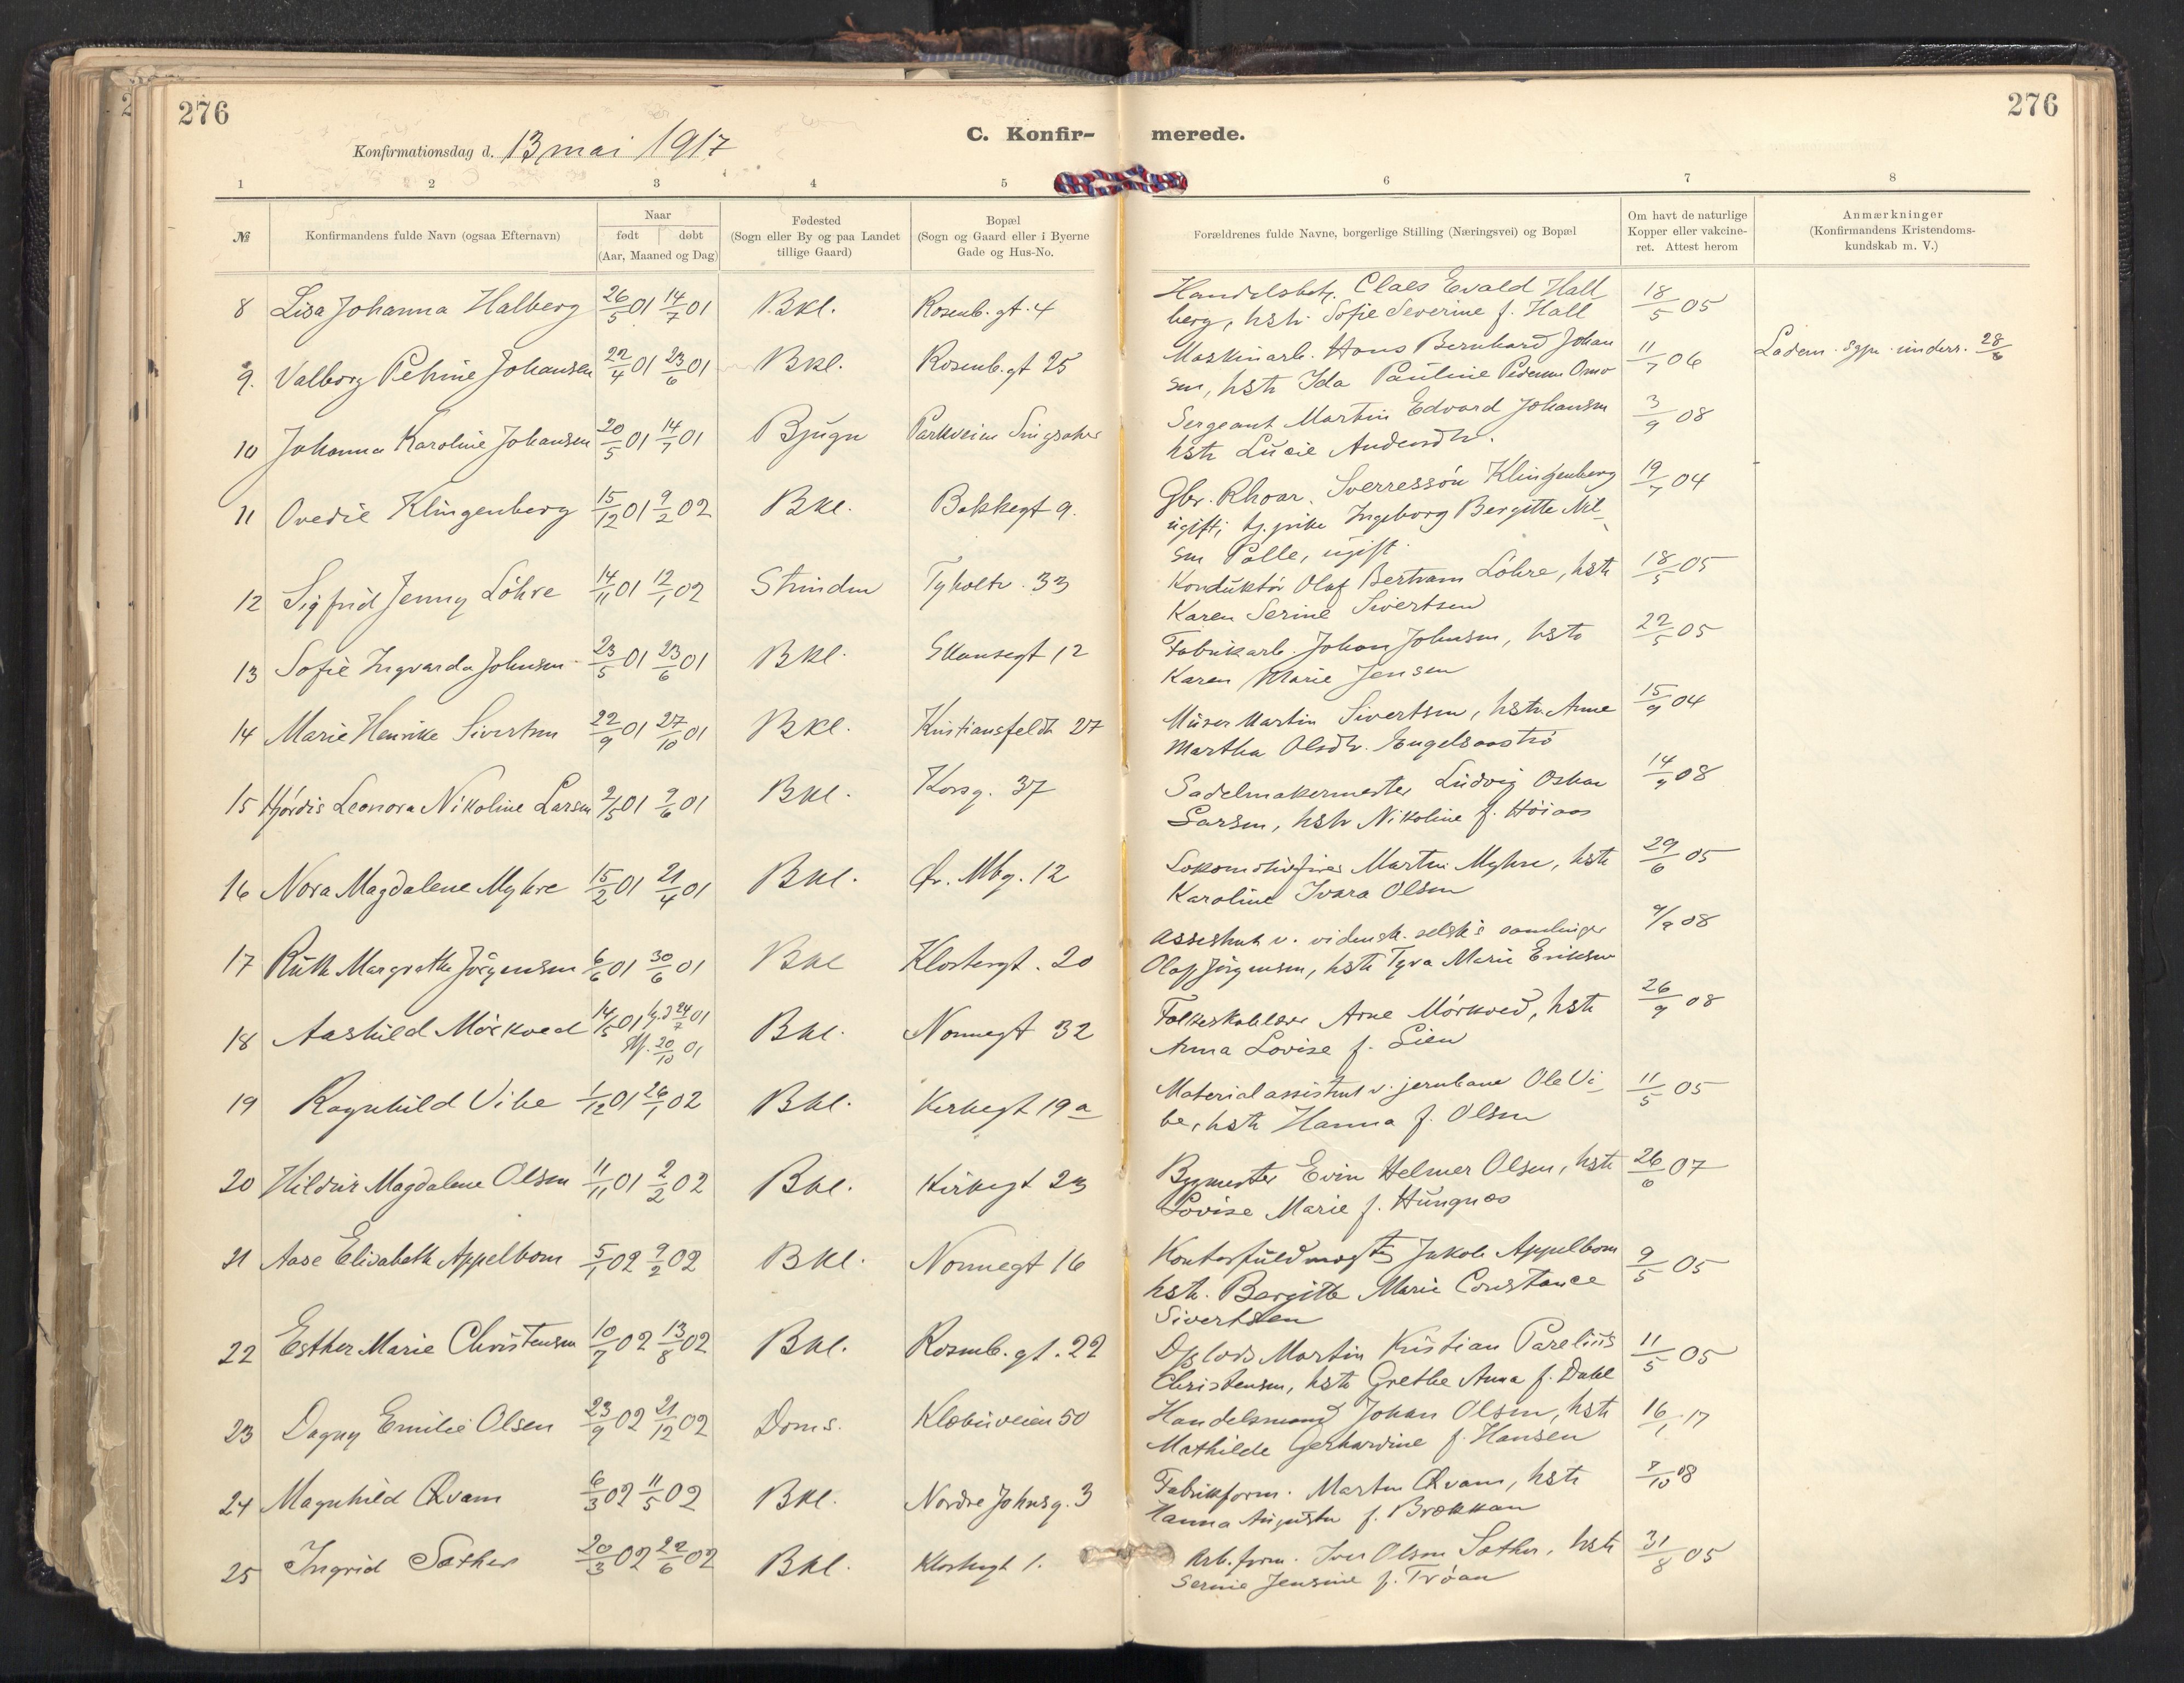 276
276
Konfirmationsdag d. 13 mai 1917
C. Konfir- merede.
1 2 3 4 5 6 7 8
№ Konfirmandens fulde Navn (ogsaa Efternavn) Naar født døbt (Aar, Maaned og Dag) Fødested (Sogn eller By og paa Landet tillige Gaard) Bopæl (Sogn og Gaard eller i Byerne Gade og Hus-No. Forældrenes fulde Navne, borgerlige Stilling (Næringsvei) og Bopæl Om havt de naturlige Kopper eller vakcineret. Attest herom Anmærkninger (Konfirmandens Kristendomskundskab m. V.)
8 Lisa Johanna Halberg 26/5 01 14/7 01 Bkl. Rosenb. gt. 4 Handelsbet. Claes Evald Hall 18/5 05
berg, hstr Sofie Severine f. Hall
9. Valborg Petrine Johansen 22/4 01 23/6 01 Bkl. Rosenb. gt 25 Maskinarb. Hans Bernhard Johan 11/7 06 Ladem. sgpr. underr. 28/6
sen, hstr Ida Pauline Pedersen Omo
10 Johanna Karoline Johansen 20/5 01 14/7 01 Bjugn Parkveien Singsaker Sergeant Martin Edvard Johansen 3/9 08
hstr Lucie Andersdtr.
11 Ovedie Klingenberg 15/12 01 9/2 02 Bkl. Bakkegt 9. Gbr. Rhoar Sverressøn Klingenberg 19/7 04
ugift; tj. pike Ingeborg Bergitte Nil-
sen Palle, ugift
12 Sigfrid Jenny Löhre 14/11 01 12/1 02 Strinden Tyholtv. 33 Konduktør Olaf Bertram Löhre, hstr 18/5 05
Karen Serine Sivertsen
13 Sofie Ingvarda Johnsen 23/5 01 23/6 01 Bkl. Skansegt 12 Fabrikarb. Johan Johnsen, hstr 22/5 05
Karen Marie Jensen
14 Marie Henrike Sivertsen 22/9 01 27/10 01 Bkl. Kristiansfeldt 27 Murer Martin Sivertsen, hstr. Anne 15/9 04
Martha Olsdtr. Engelsaaströ
15 Hjördis Leonora Nikoline Larsen 2/5 01 9/6 01 Bkl. Korsg. 37 Sadelmakermester Ludvig Oskar 14/9 08
Larsen, hstr Nikoline f. Höiaas
16 Nora Magdalene Myhre 15/2 01 21/4 01 Bkl. Ør. Mbg. 12 Lokomotivfyrer Martin Myhre, hstr 29/6 05
Karoline Ivara Olsen
17 Ruth Margrethe Jörgensen 6/6 01 30/6 01 Bkl Klostergt. 20 Assistent v. vidensk. selsk's samlinger 9/9 08
Olaf Jörgensen, hstr Tyra Marie Eriksen
18 Aashild Mörkved 14/5 01 hj.d 24/7 01 Bkl. Nonnegt 32 Folkeskolelærer Arne Mörkved, hstr 26/9 08
20/10 01
Anna Lovise f. Lien
19 Ragnhild Vibe 1/12 01 26/1 02 Bkl. Kirkegt 19a Materialassistent v. jernbane Ole Vi- 11/5 05
be, hstr Hanna f. Olsen
20 Hildur Magdalene Olsen 11/11 01 2/2 02 Bkl. Kirkegt 23 Bygmester Evin Helmer Olsen, hstr 26/6 07
Lovise Marie f. Hungnes
21 Aase Elisabeth Appelbom 5/1 02 9/2 02 Bkl. Nonnegt 16 Kontorfuldmægtig Jakob Appelbom 9/5 05
hstr. Bergitte Marie Constance
Sivertsen
22 Esther Marie Christensen 10/7 02 13/8 02 Bkl. Rosenb. gt. 22 Dpslods Martin Kristian Parelius 11/5 05
Christensen, hstr Grethe Anna f. Dahl
23 Dagny Emilie Olsen 23/9 02 21/12 02 Doms. Klæbuveien 50 Handelsmand Johan Olsen, hstr 16/1 17
Mathilde Gerhardine f. Hansen
24 Magnhild Qvam 6/3 02 11/5 02 Bkl. Nordre Johnsg. 3 Fabrikform. Martin Qvam, hstr 7/10 08
Hanna Augusta f. Brækkan
25 Ingrid Sæther 20/3 02 22/6 02 Bkl. Klostergt 1. Arb. form. Iver Olsen Sæther, hstr 31/8 05
Serine Jensine f. Tröan